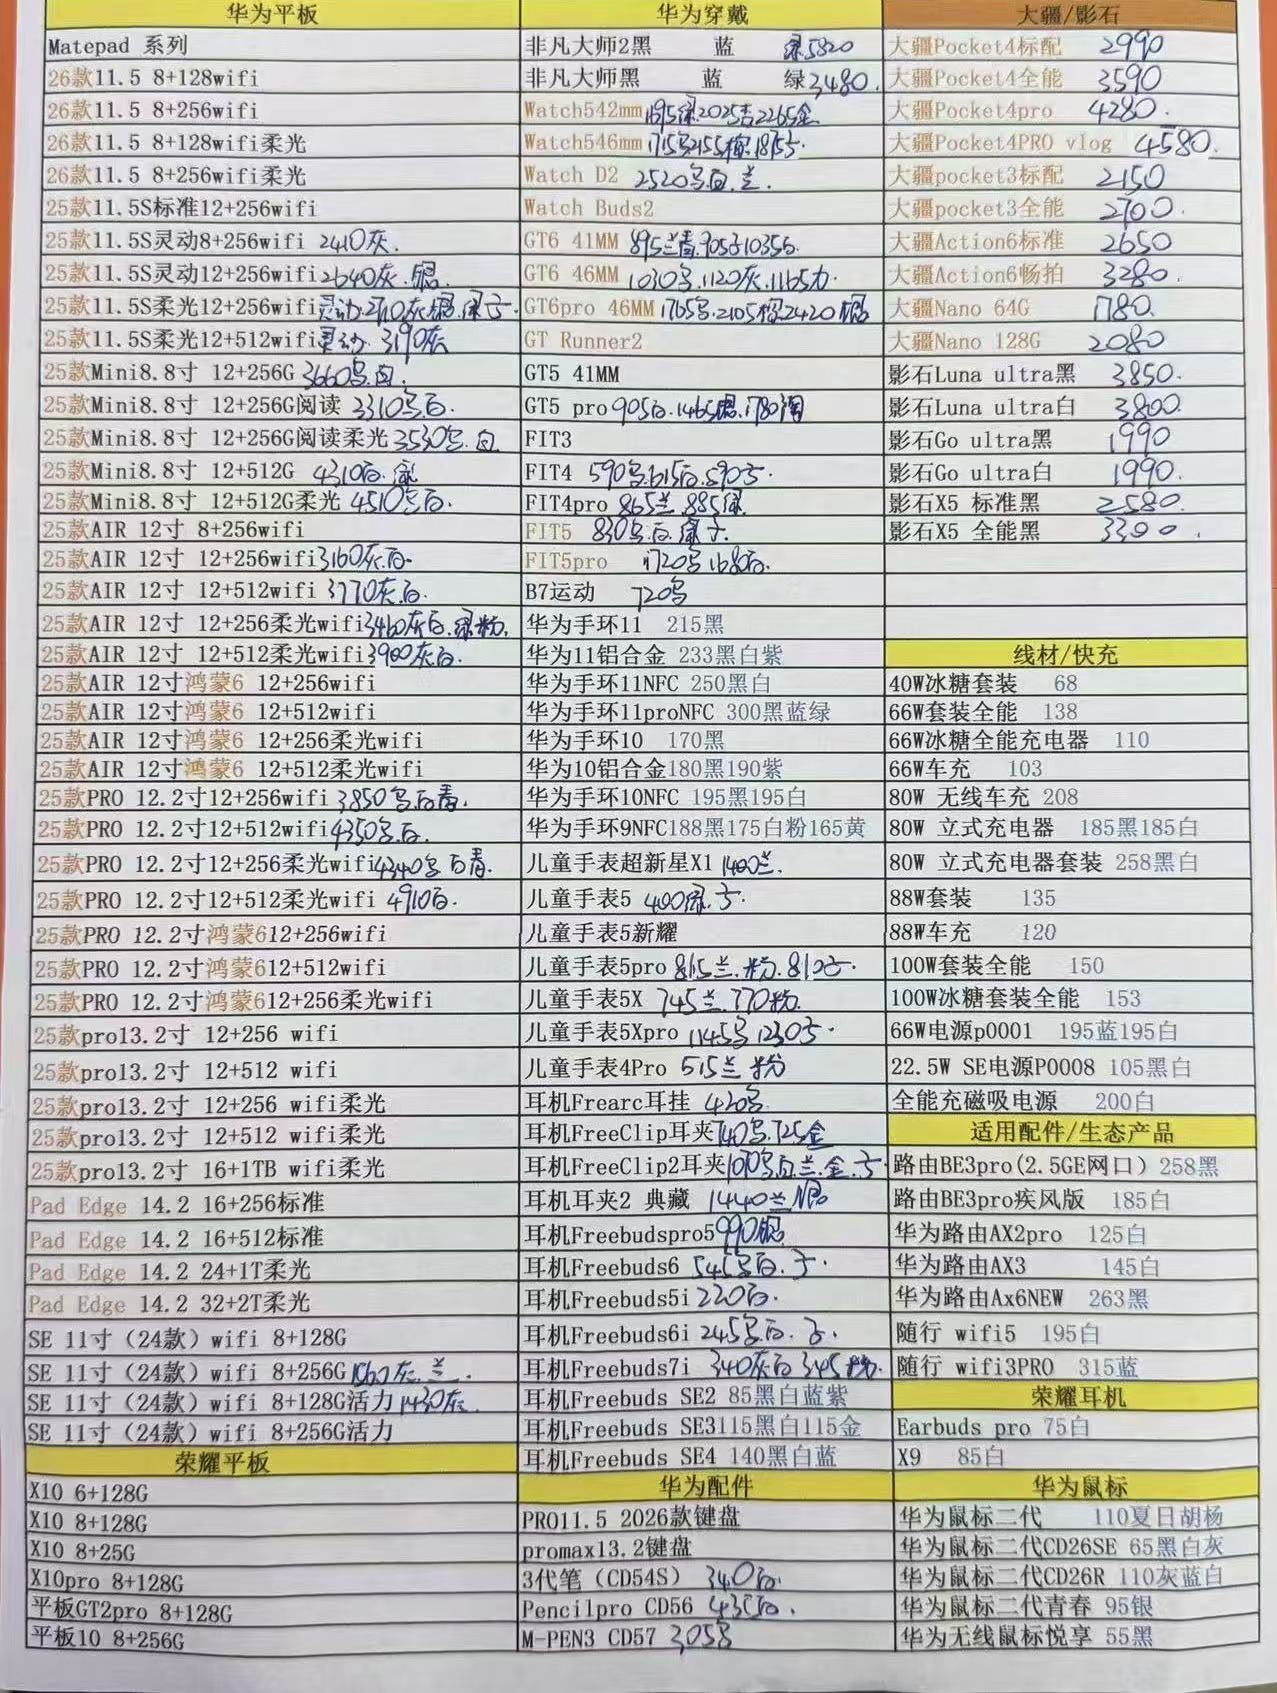 华为平板
Matepad 系列
26款11.5 8+128wifi
26款11.5 8+256wifi
26款11.5 8+128wifi柔光
26款11.5 8+256wifi柔光
25款11.5S标准12+256wifi
25款11.5S灵动8+256wifi 2410灰.
25款11.5S灵动12+256wifi 2640灰.银.
25款11.5S柔光12+256wifi灵动.2710灰银.绿
25款11.5S柔光12+512wifi灵动. 3190灰
25款Mini8.8寸 12+256G 3660 白.
25款Mini8.8寸 12+256G阅读 3310 白.
25款Mini8.8寸 12+256G阅读柔光 3530 白
25款Mini8.8寸 12+512G 4310白.
25款Mini8.8寸 12+512G柔光 4510 白.
25款AIR 12寸 8+256wifi
25款AIR 12寸 12+256wifi 3160灰.白.
25款AIR 12寸 12+512wifi 3770灰.白.
25款AIR 12寸 12+256柔光wifi 3460灰白.绿粉.
25款AIR 12寸 12+512柔光wifi 3900灰白.
25款AIR 12寸鸿蒙6 12+256wifi
25款AIR 12寸鸿蒙6 12+512wifi
25款AIR 12寸鸿蒙6 12+256柔光wifi
25款AIR 12寸鸿蒙6 12+512柔光wifi
25款PRO 12.2寸12+256wifi 3850 白青.
25款PRO 12.2寸12+512wifi 4350 白.
25款PRO 12.2寸12+256柔光wifi 4340 白青.
25款PRO 12.2寸12+512柔光wifi 4910白.
25款PRO 12.2寸鸿蒙612+256wifi
25款PRO 12.2寸鸿蒙612+512wifi
25款PRO 12.2寸鸿蒙612+256柔光wifi
25款pro13.2寸 12+256 wifi
25款pro13.2寸 12+512 wifi
25款pro13.2寸 12+256 wifi柔光
25款pro13.2寸 12+512 wifi柔光
25款pro13.2寸 16+1TB wifi柔光
Pad Edge 14.2 16+256标准
Pad Edge 14.2 16+512标准
Pad Edge 14.2 24+1T柔光
Pad Edge 14.2 32+2T柔光
SE 11寸（24款）wifi 8+128G
SE 11寸（24款）wifi 8+256G 灰.兰.
SE 11寸（24款）wifi 8+128G活力 1430灰.
SE 11寸（24款）wifi 8+256G活力
荣耀平板
X10 6+128G
X10 8+128G
X10 8+25G
X10pro 8+128G
平板GT2pro 8+128G
平板10 8+256G
华为穿戴
非凡大师2黑 蓝 绿5820
非凡大师黑 蓝 绿3480.
Watch542mm 绿.2025 2265金
Watch546mm 1715 2155
Watch D2 2520 白.兰.
Watch Buds2
GT6 41MM 895兰青.905 1035
GT6 46MM 1030 .1120灰.1165
GT6pro 46MM 1765 .2105 2420
GT Runner2
GT5 41MM
GT5 pro 905白.1465 .1780
FIT3
FIT4 590 615白.590
FIT4pro 865兰.885绿.
FIT5 830 白.绿
FIT5pro 1720 1680白.
B7运动 720
华为手环11 215黑
华为11铝合金 233黑白紫
华为手环11NFC 250黑白
华为手环11proNFC 300黑蓝绿
华为手环10 170黑
华为10铝合金180黑190紫
华为手环10NFC 195黑195白
华为手环9NFC188黑175白粉165黄
儿童手表超新星X1 1400兰.
儿童手表5 400绿.
儿童手表5新耀
儿童手表5pro 815兰.粉.810
儿童手表5X 745兰.770粉.
儿童手表5Xpro 1145 1230
儿童手表4Pro 515兰 粉
耳机Frearc耳挂 420
耳机FreeClip耳夹740 .725金
耳机FreeClip2耳夹1070 白.兰.金.
耳机耳夹2 典藏 1440兰.银
耳机Freebudspro5 990银
耳机Freebuds6 545 白.
耳机Freebuds5i 220白.
耳机Freebuds6i 245 白.
耳机Freebuds7i 340灰白 345粉.
耳机Freebuds SE2 85黑白蓝紫
耳机Freebuds SE3115黑白115金
耳机Freebuds SE4 140黑白蓝
华为配件
PRO11.5 2026款键盘
promax13.2键盘
3代笔（CD54S） 340白.
Pencilpro CD56 435白.
M-PEN3 CD57 305
大疆/影石
大疆Pocket4标配 2990
大疆Pocket4全能 3590
大疆Pocket4pro 4280.
大疆Pocket4PRO vlog 4580.
大疆pocket3标配 2150
大疆pocket3全能 2700.
大疆Action6标准 2650
大疆Action6畅拍 3280.
大疆Nano 64G 1780.
大疆Nano 128G 2080
影石Luna ultra黑 3850.
影石Luna ultra白 3800.
影石Go ultra黑 1990
影石Go ultra白 1990.
影石X5 标准黑 2580.
影石X5 全能黑 3300.
线材/快充
40W冰糖套装 68
66W套装全能 138
66W冰糖全能充电器 110
66W车充 103
80W 无线车充 208
80W 立式充电器 185黑185白
80W 立式充电器套装 258黑白
88W套装 135
88W车充 120
100W套装全能 150
100W冰糖套装全能 153
66W电源p0001 195蓝195白
22.5W SE电源P0008 105黑白
全能充磁吸电源 200白
适用配件/生态产品
路由BE3pro(2.5GE网口）258黑
路由BE3pro疾风版 185白
华为路由AX2pro 125白
华为路由AX3 145白
华为路由Ax6NEW 263黑
随行 wifi5 195白
随行 wifi3PRO 315蓝
荣耀耳机
Earbuds pro 75白
X9 85白
华为鼠标
华为鼠标二代 110夏日胡杨
华为鼠标二代CD26SE 65黑白灰
华为鼠标二代CD26R 110灰蓝白
华为鼠标二代青春 95银
华为无线鼠标悦享 55黑